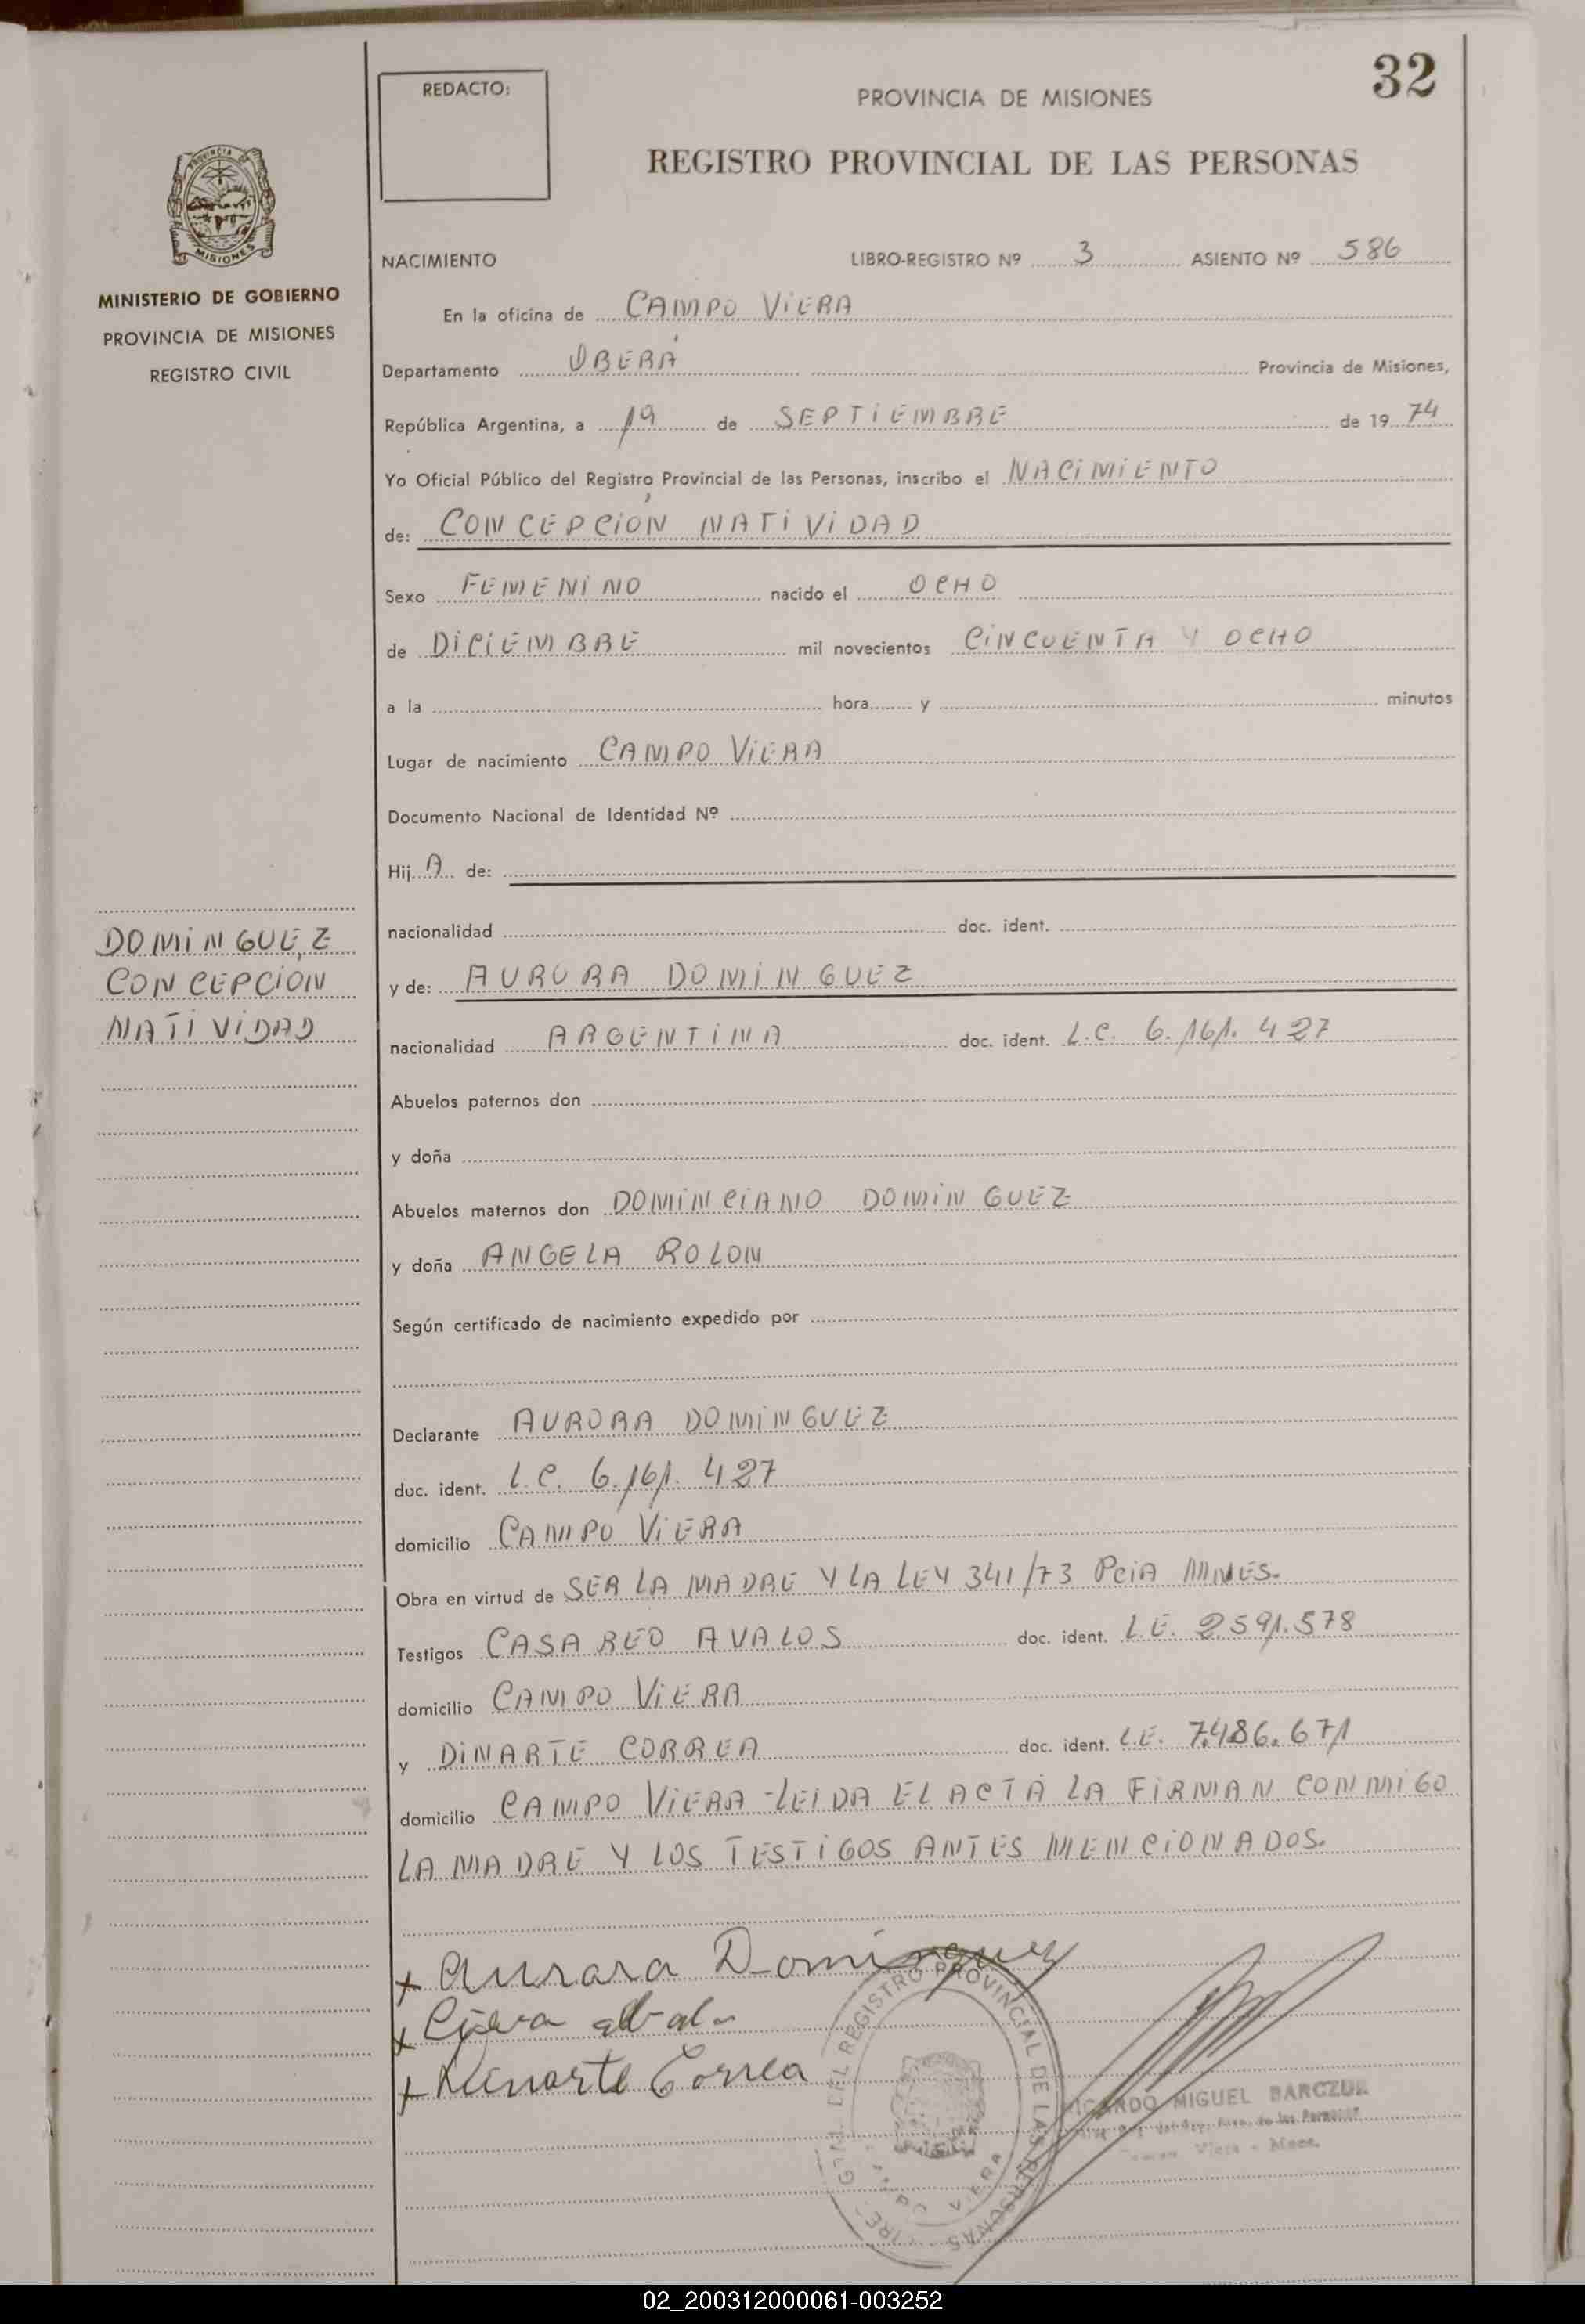 32
REDACTO:
PROVINCIA DE MISIONES
REGISTRO PROVINCIAL DE LAS PERSONAS
PROVINCIA DE
MISIONES
MINISTERIO DE GOBIERNO
PROVINCIA DE MISIONES
REGISTRO CIVIL
NACIMIENTO LIBRO-REGISTRO Nº 3 ASIENTO Nº 586
En la oficina de CAMPO VIERA
Departamento OBERÁ Provincia de Misiones,
República Argentina, a 19 de SEPTIEMBRE de 19 74
Yo Oficial Público del Registro Provincial de las Personas, inscribo el NACIMIENTO
de: CONCEPCIÓN NATIVIDAD
Sexo FEMENINO nacido el OCHO
de DICIEMBRE mil novecientos CINCUENTA Y OCHO
a la hora y minutos
Lugar de nacimiento CAMPO VIERA
Documento Nacional de Identidad Nº
Hij A de:
nacionalidad doc. ident.
DOMINGUEZ
CONCEPCIÓN
NATIVIDAD
y de: AURORA DOMINGUEZ
nacionalidad ARGENTINA doc. ident. L.C. 6.161.427
Abuelos paternos don
y doña
Abuelos maternos don DOMINCIANO DOMINGUEZ
y doña ANGELA ROLON
Según certificado de nacimiento expedido por
Declarante AURORA DOMINGUEZ
doc. ident. L.C. 6.161.427
domicilio CAMPO VIERA
Obra en virtud de SER LA MADRE Y LA LEY 341/73 PCIA MNES.
Testigos CASAREO AVALOS doc. ident. L.E. 2.591.578
domicilio CAMPO VIERA
y DINARTE CORREA doc. ident. L.E. 7.486.671
domicilio CAMPO VIERA - LEIDA EL ACTA LA FIRMAN CONMIGO
LA MADRE Y LOS TESTIGOS ANTES MENCIONADOS.
x Aurara Dominguez
x
x Dinarte Correa
DEL REGISTRO PROVINCIAL DE LAS PERSONAS
VIERA
MIGUEL BARCZUK
Viera
02_200312000061-003252